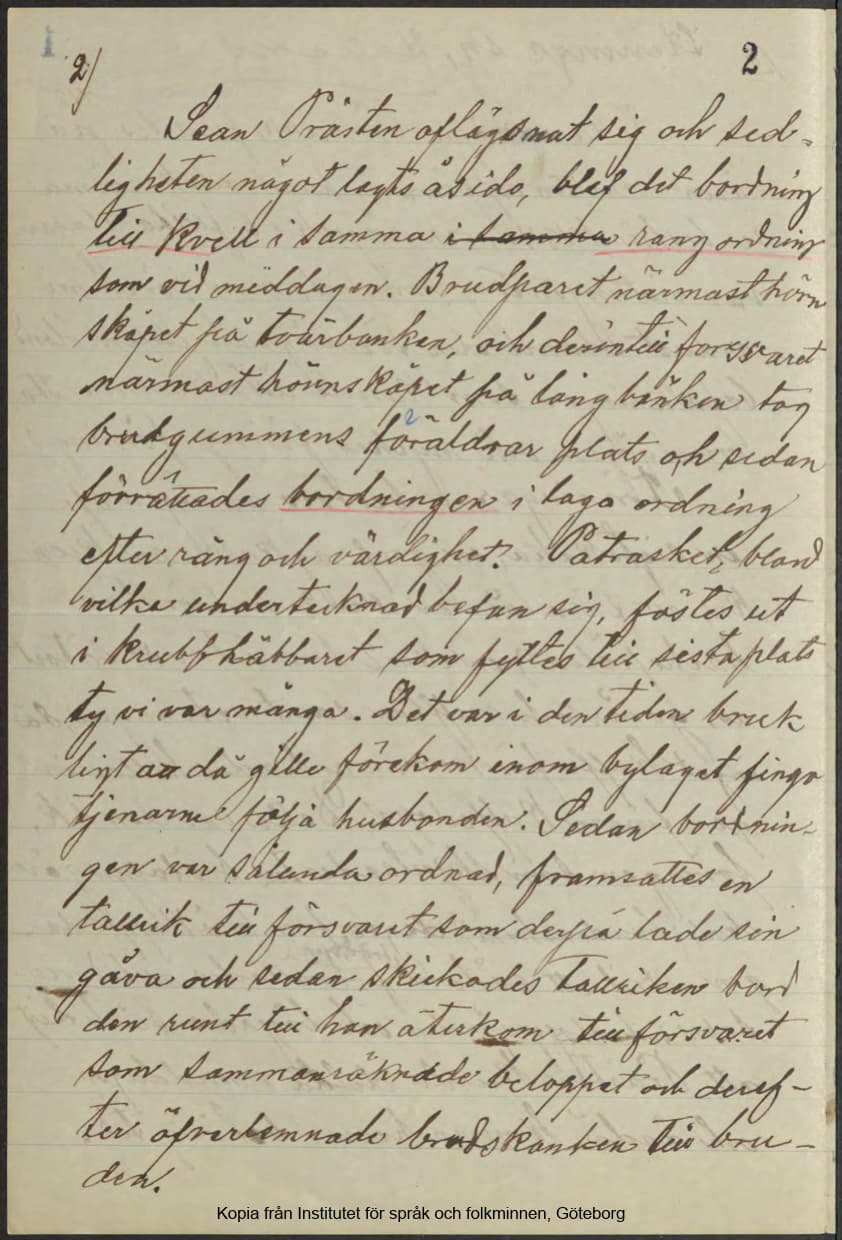 2)
2
Sean Prästen aflägsnat sig och sed-
ligheten något lagts åsido, blef det bordning
till kvell i samma i samma rangordning
som vid middagen. Brudparet närmast hörn
skåpet på tvärbanken, och derintill forsvaret
närmast hörnskåpet på långbänken tog
brudgummens föräldrar plats och sedan
förrättades bordningen i laga ordning
efter rang och värdighet. Patrasket, bland
vilka undertecknad befan sig, föstes ut
i krubbhäbbaret som fylltes till sista plats
ty vi var många. Det var i den tiden bruk
ligt att då gille förekom inom bylaget fingo
tjenarne följa husbonden. Sedan bordnin-
gen var sålunda ordnad, framsattes en
tallrik till försvaret som derpå lade sin
gåva och sedan skickades Tallriken bord
den runt till han återkom till försvaret
som sammanräknade beloppet och deref-
ter öfverlemnade brudskanken till bru-
den.
Kopia från Institutet för språk och folkminnen, Göteborg